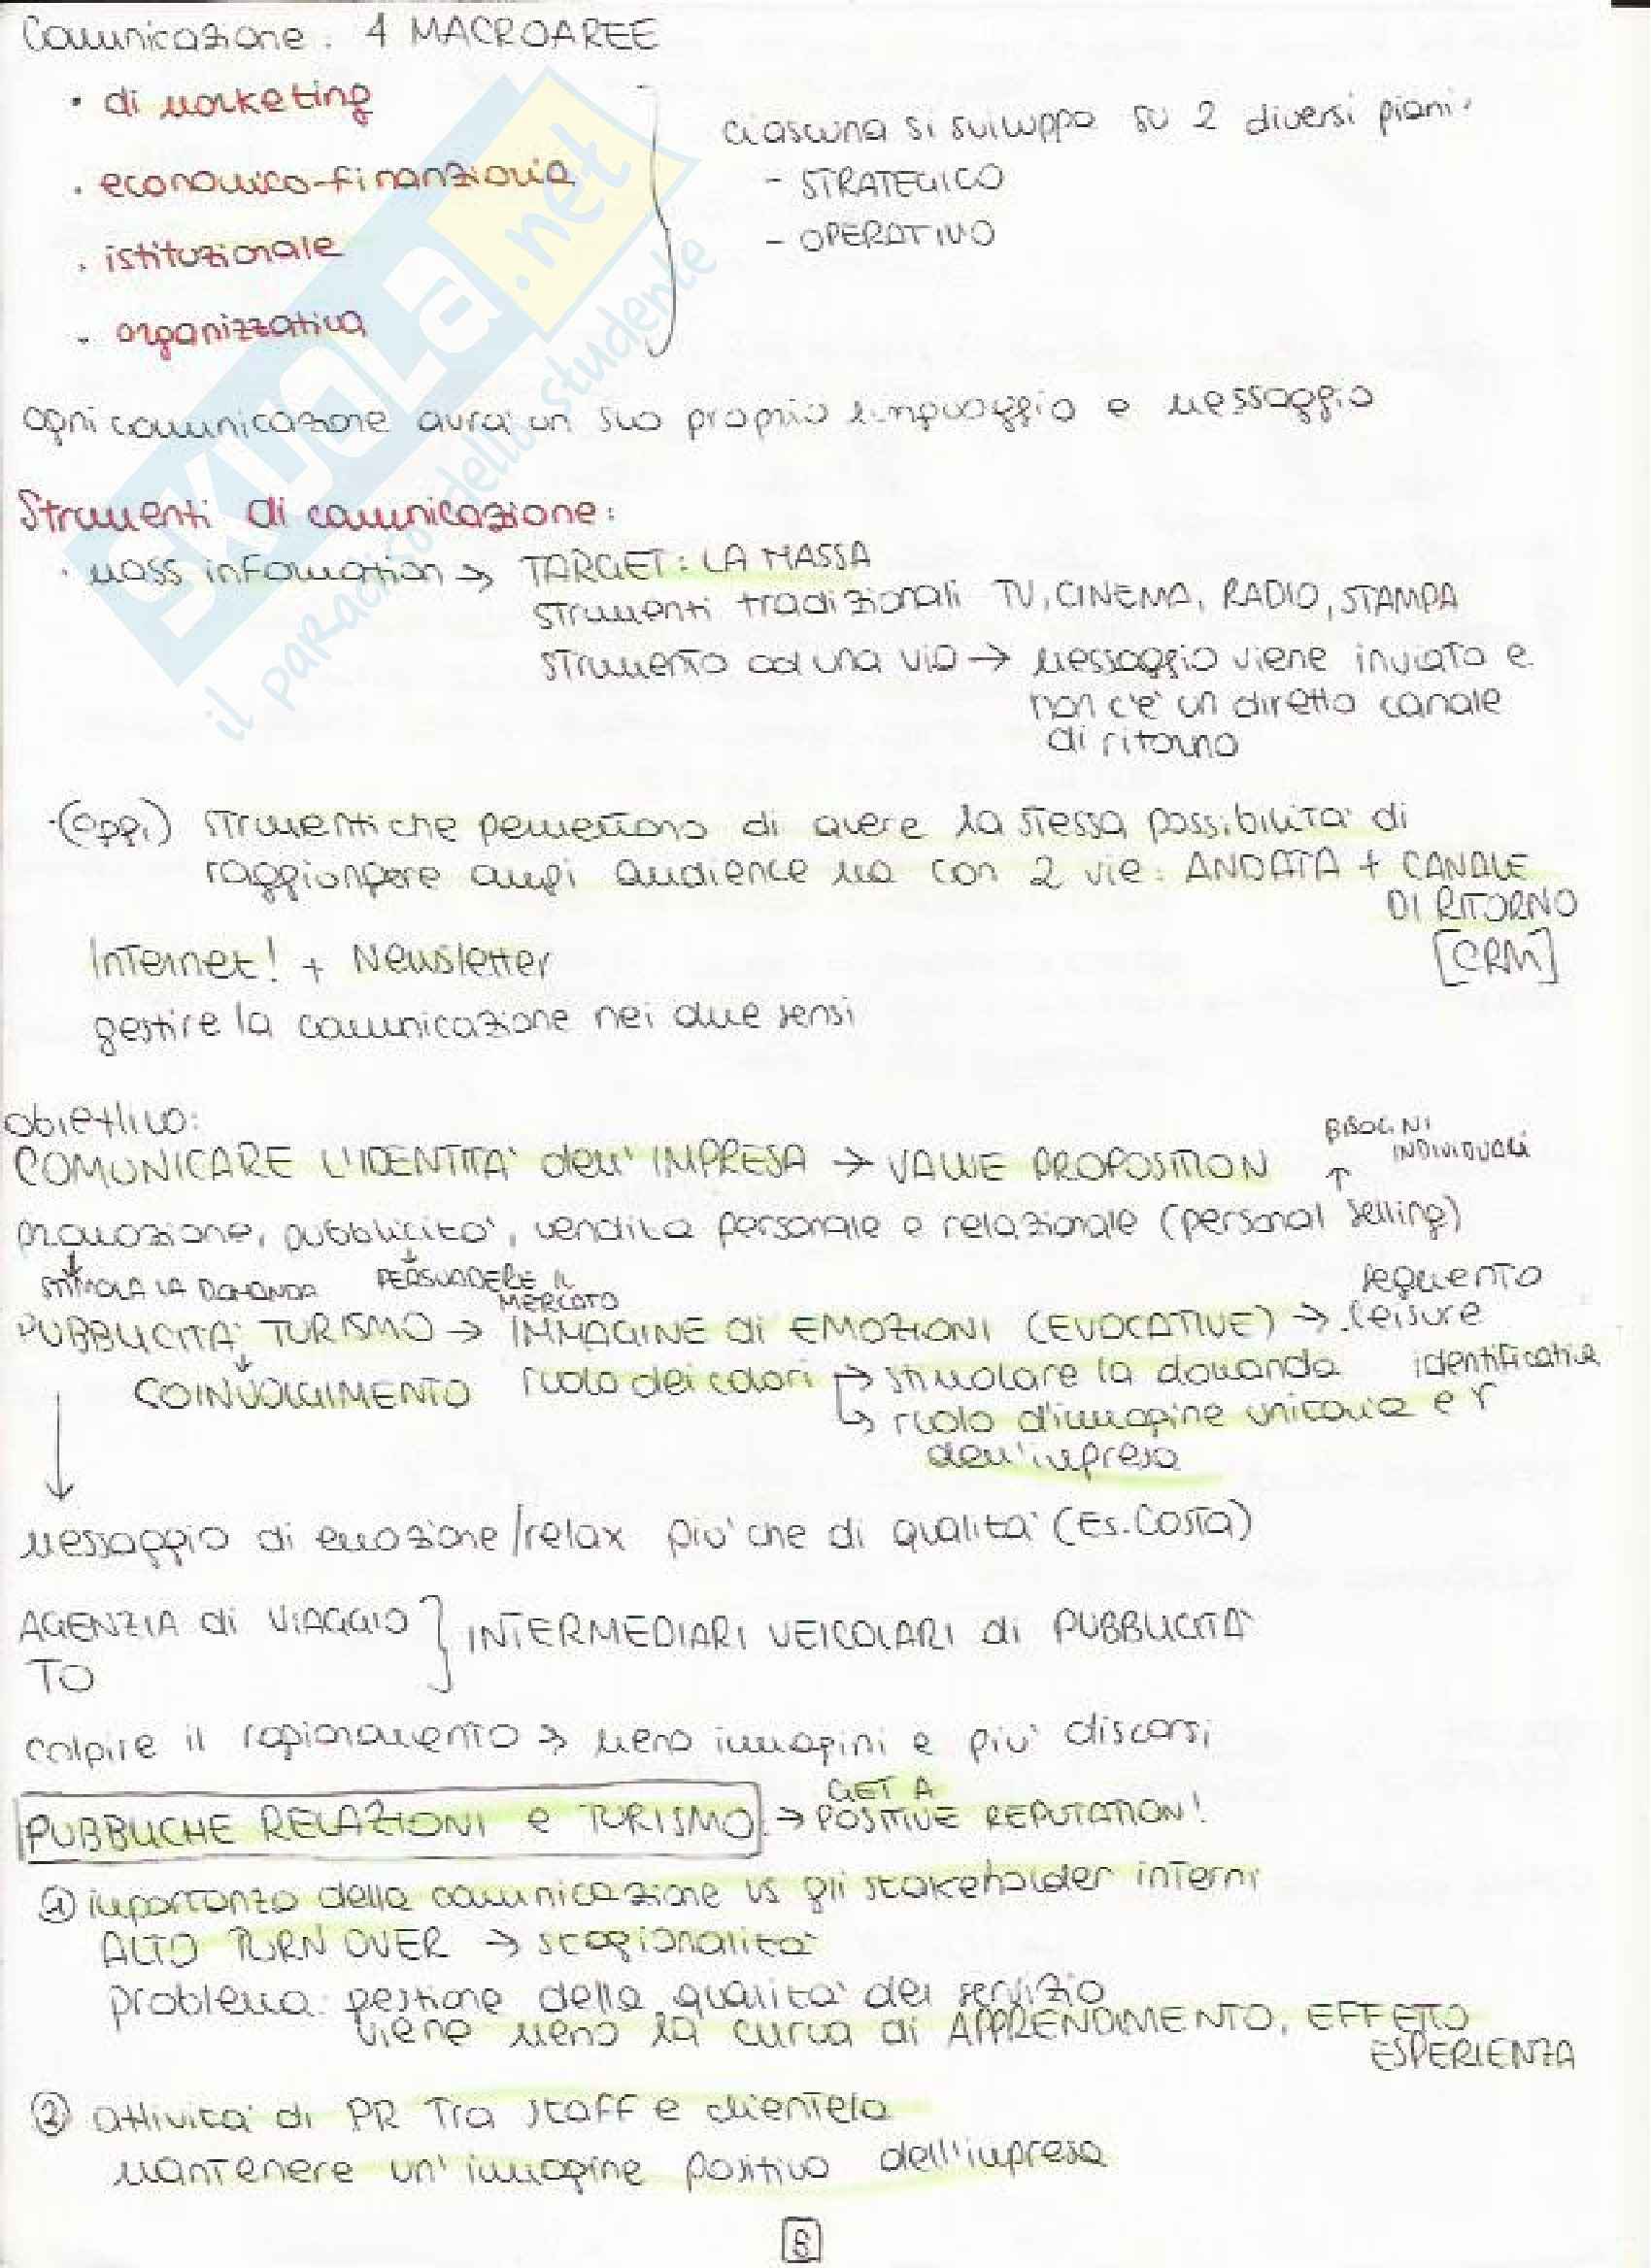 Comunicazione: 4 MACROAREE
• di marketing
• economico-finanziaria
• istituzionale
- organizzativa
ciascuna si sviluppa su 2 diversi piani:
- STRATEGICO
- OPERATIVO
ogni comunicazione avrà un suo proprio linguaggio e messaggio
Strumenti di comunicazione:
• mass information → TARGET: LA MASSA
strumenti tradizionali TV, CINEMA, RADIO, STAMPA
strumento ad una via → messaggio viene inviato e
non c'è un diretto canale
di ritorno
• (oggi) strumenti che permettono di avere la stessa possibilità di
raggiungere ampi audience ma con 2 vie: ANDATA + CANALE
DI RITORNO
[CRM]
Internet! + Newsletter
gestire la comunicazione nei due sensi
obiettivo:
COMUNICARE L'IDENTITA' dell'IMPRESA → VALUE PROPOSITION
BISOGNI
INDIVIDUALI
↑
promozione, pubblicità, vendita personale e relazionale (personal selling)
↓ STIMOLA LA DOMANDA
↓ PERSUADERE IL
MERCATO
segmento
PUBBLICITA' TURISMO → IMMAGINE di EMOZIONI (EVOCATIVE) → leisure
↓ COINVOLGIMENTO ruolo dei colori → stimolare la domanda
↳ ruolo d'immagine unitaria e identificativa
dell'impresa
↓
messaggio di emozione/relax più che di qualità (Es. Costa)
AGENZIA di VIAGGIO } INTERMEDIARI VEICOLARI di PUBBLICITA'
TO
colpire il ragionamento → meno immagini e più discorsi
PUBBLICHE RELAZIONI e TURISMO → GET A
POSITIVE REPUTATION!
① importanza della comunicazione vs gli stakeholder interni
ALTO TURN OVER → stagionalità
problema: gestione della qualità del servizio
viene meno la curva di APPRENDIMENTO, EFFETTO
ESPERIENZA
② attività di PR tra staff e clientela
mantenere un'immagine positiva dell'impresa
SKUOLA.net
il paradiso dello studente